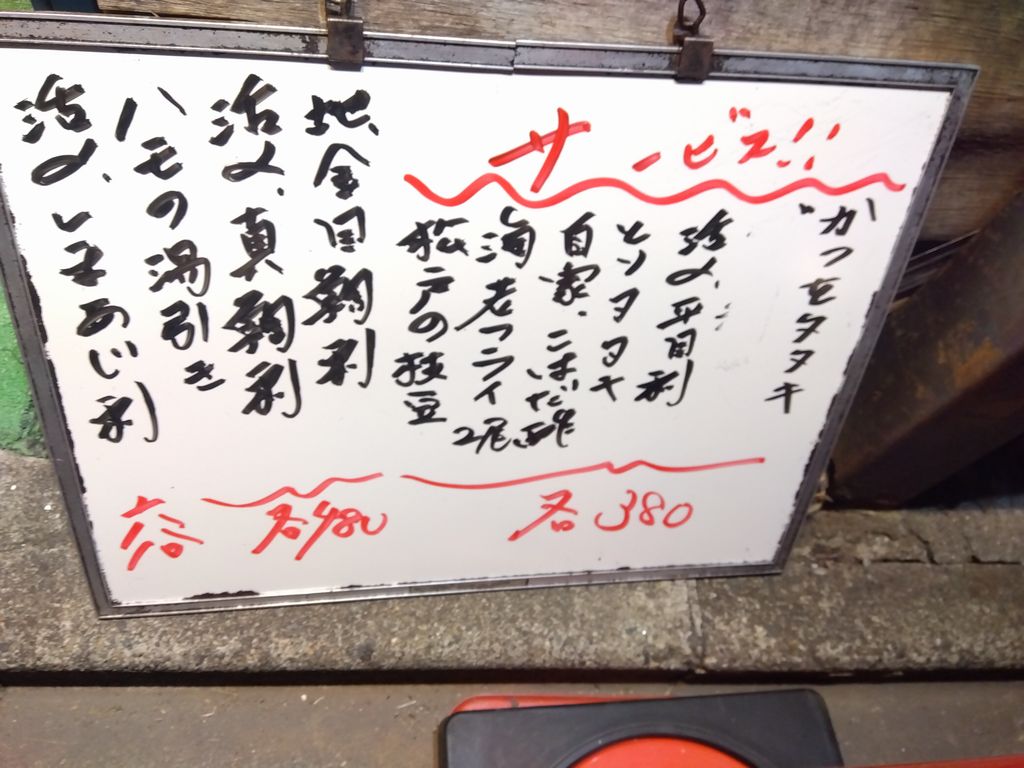 サービス!!
かつをタタキ
活〆平目刺
とりタタキ
自家、こはだ酢
海老フライ2尾
松戸の枝豆
各380
地、金目鯛刺
活〆、真鯛刺
ハモの湯引き
各480
活〆、しまあじ刺